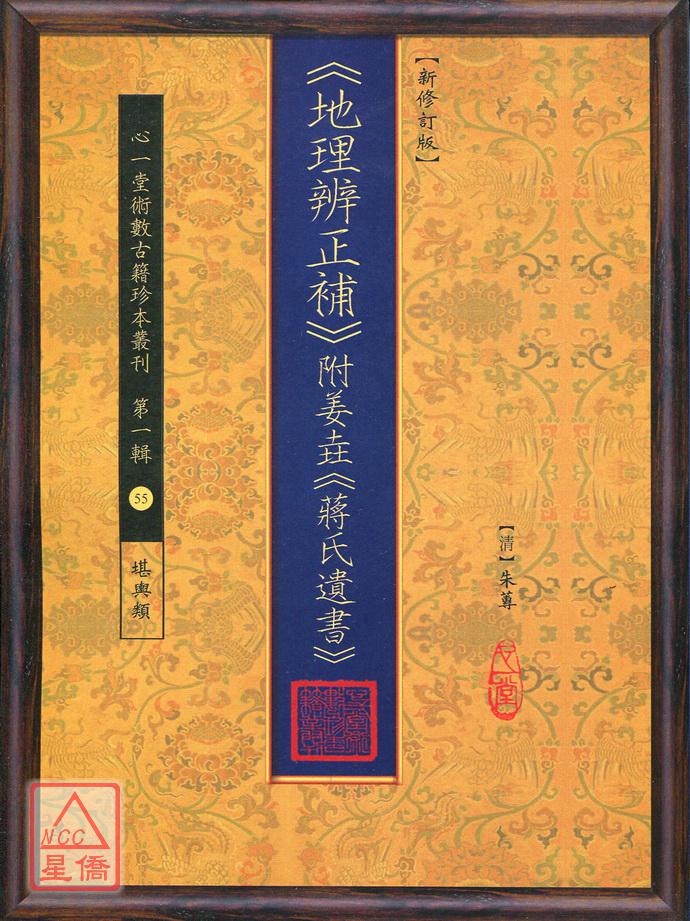 【新修訂版】
《地理辨正補》附姜垚《蔣氏遺書》
【清】朱蓴
心一堂
心一堂術數古籍珍本叢刊 第一輯
55
堪輿類
NCC
星僑